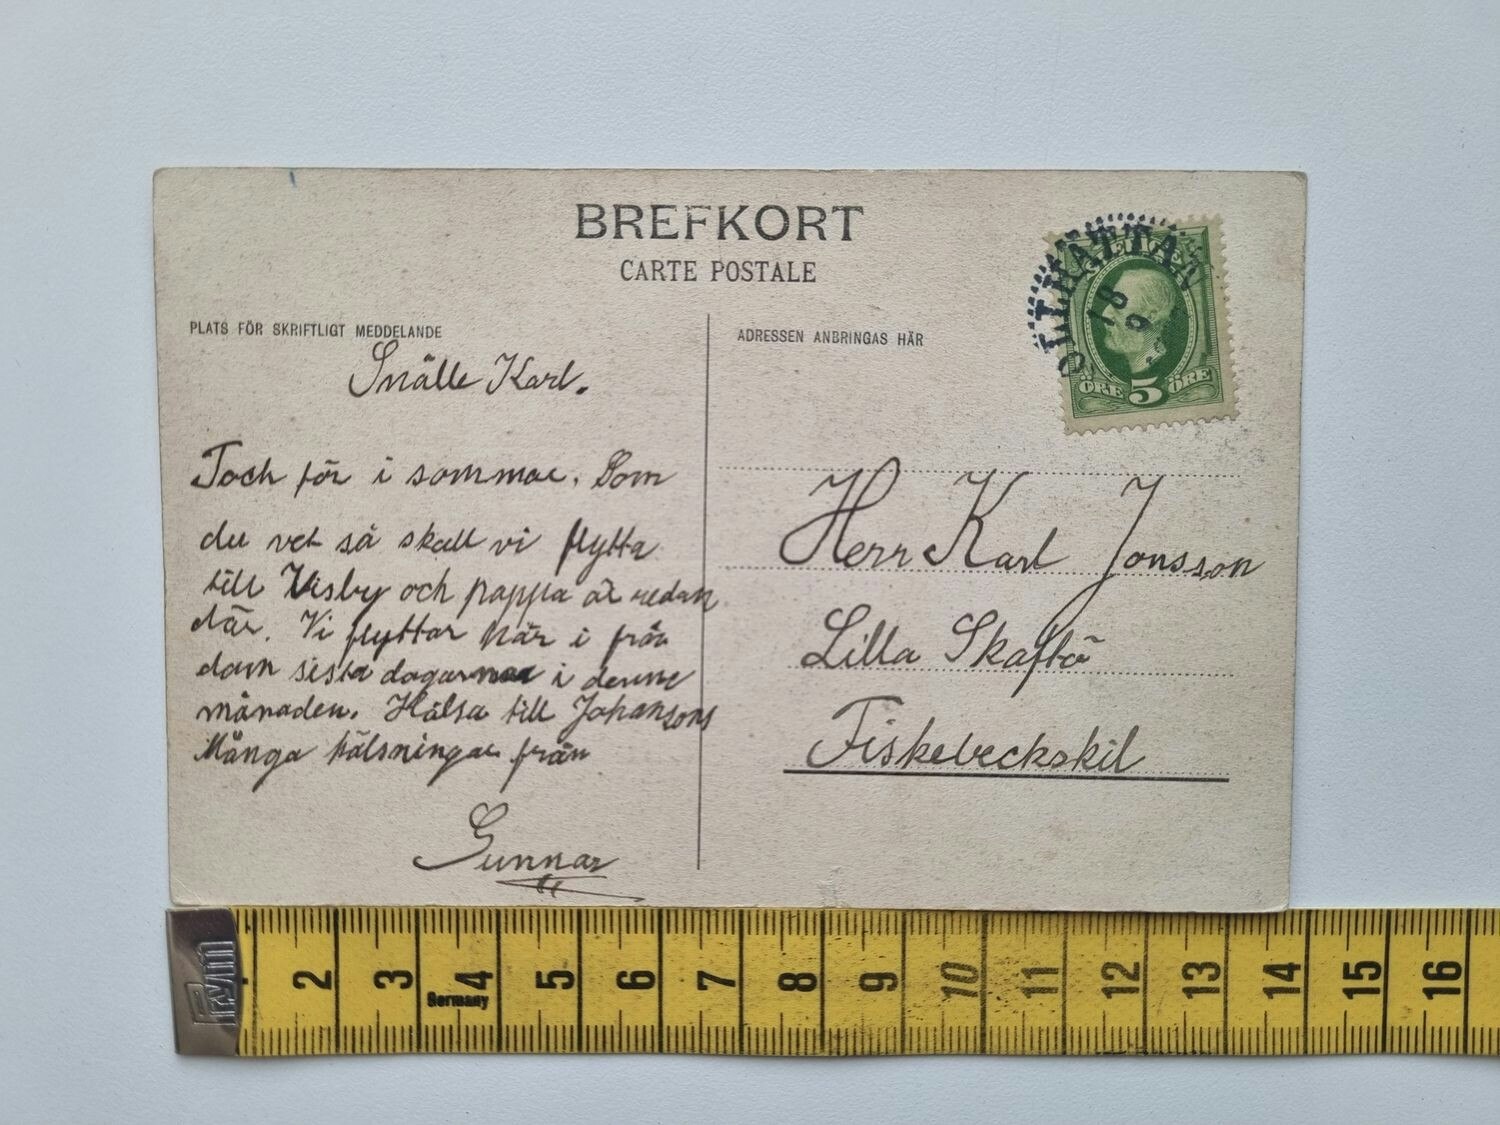 BREFKORT
CARTE POSTALE
PLATS FÖR SKRIFTLIGT MEDDELANDE
Snälle Karl.
Tack för i sommar. Som
du vet så skall vi flytta
till Visby och pappa är redan
där. Vi flyttar här i från
dom sista dagarna i denne
månaden. Hälsa till Johansons
Många hälsningar från
Gunnar
ADRESSEN ANBRINGAS HÄR
18
9
ÖRE 5 ÖRE
Herr Karl Jonsson
Lilla Skaftö
Fiskebeckskil
Prym
2 3 4 5 6 7 8 9 10 11 12 13 14 15 16
Germany